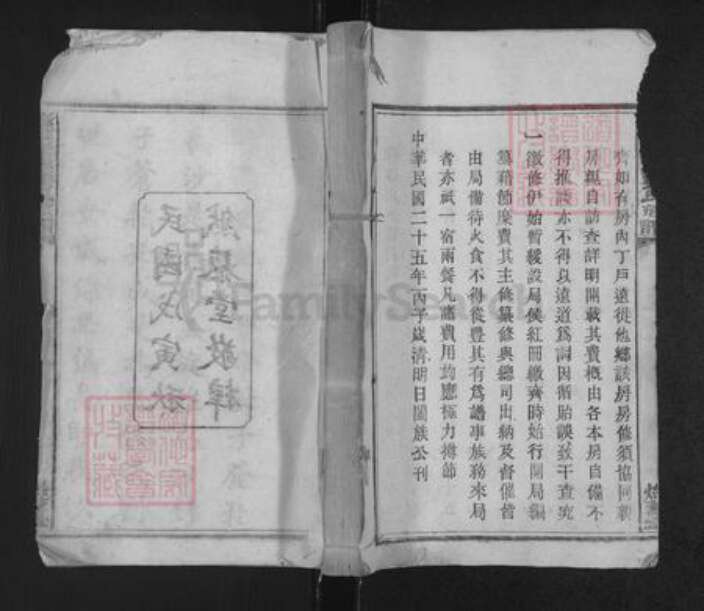 齊如有房內丁戶遠徙他鄉該房房修須協同親
房親自訪查詳明開載其費概由各本房自備不
得推諉亦不得以遠道為詞因循貽誤致干查究
一徵修伊始暫緩設局俟紅冊繳齊時始行開局編
纂藉節糜費其主修纂修與總司出納及督催皆
由局備待火食不得從豐其有為譜事族務來局
者亦祇一宿兩餐凡應費用均應極力撙節
中華民國二十五年丙子歲清明日闔族公刊
民國戊寅秋
堂敬梓
FamilySearch